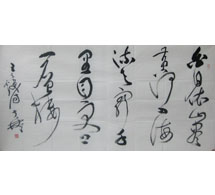 白日依山尽
黄河入海
流欲穷千
里目更上
一层楼